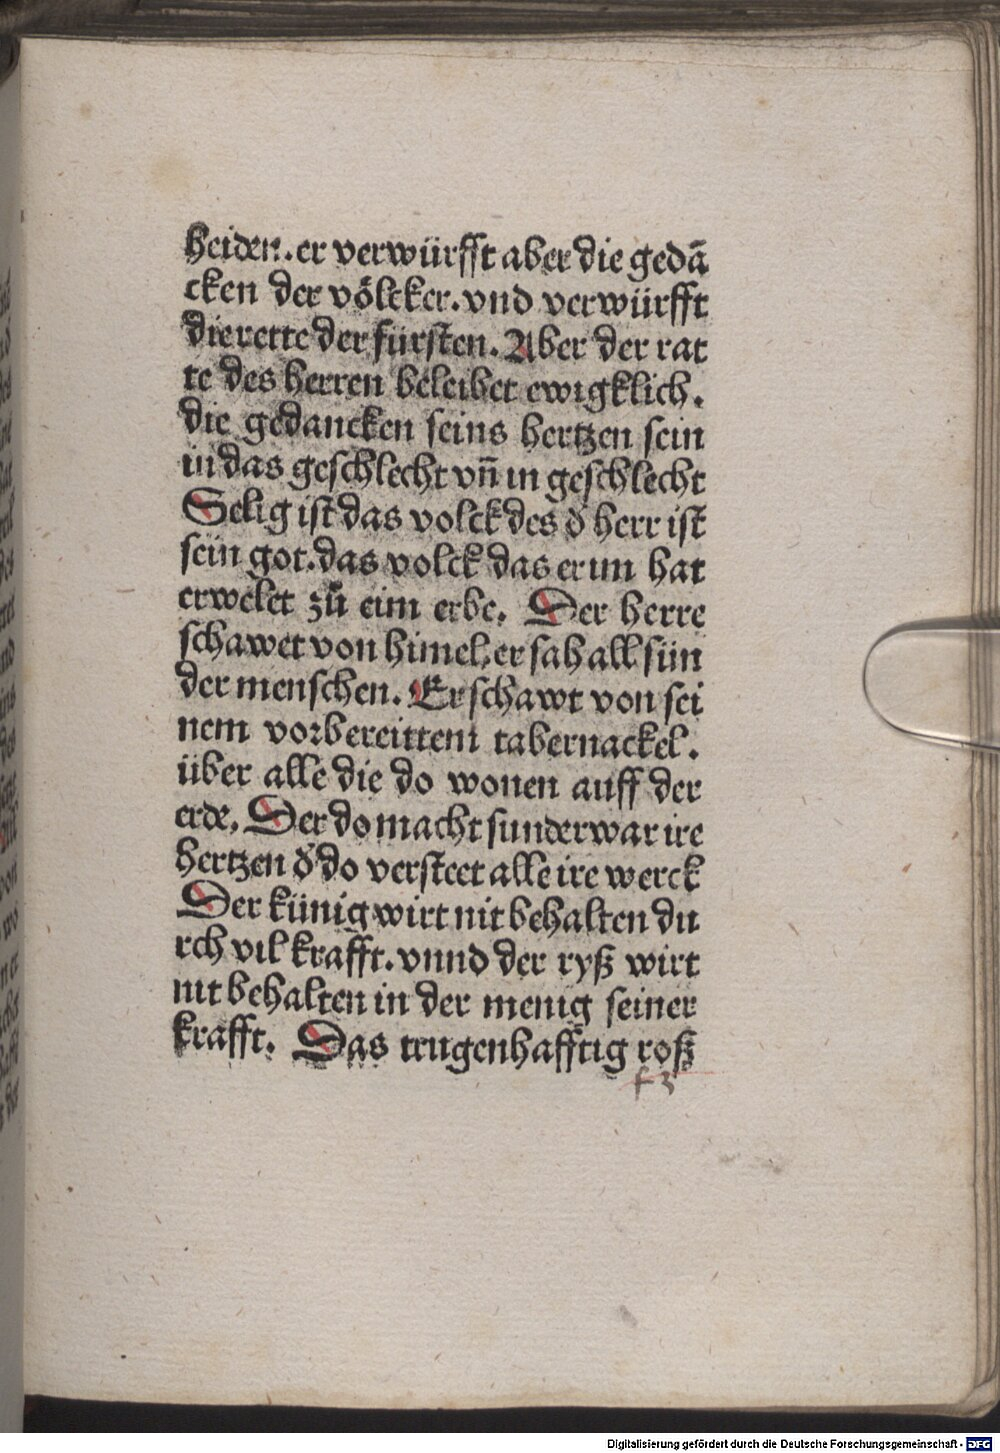 heiden. er verwürfft aber die gedā
cken der völcker. vnd verwürfft
die rette der fürsten. Aber der rat
te des herren beleibet ewigklich.
die gedancken seins hertzen sein
in das geschlecht vn̄ in geschlecht
Selig ist das volck des d̕ herr ist
sein got. das volck das er im hat
erwelet zů eim erbe. Der herre
schawet von himel, er sah all sün
der menschen. Er schawt von sei
nem vorbereittem tabernackel.
über alle die do wonen auff der
erde. Der do macht sunderwar ire
hertzen d̕ do versteet alle ire werck
Der künig wirt nit behalten du
rch vil krafft. vnnd der ryß wirt
nit behalten in der menig seiner
krafft. Das trugenhafftig roß
f 3
Digitalisierung gefördert durch die Deutsche Forschungsgemeinschaft - DFG